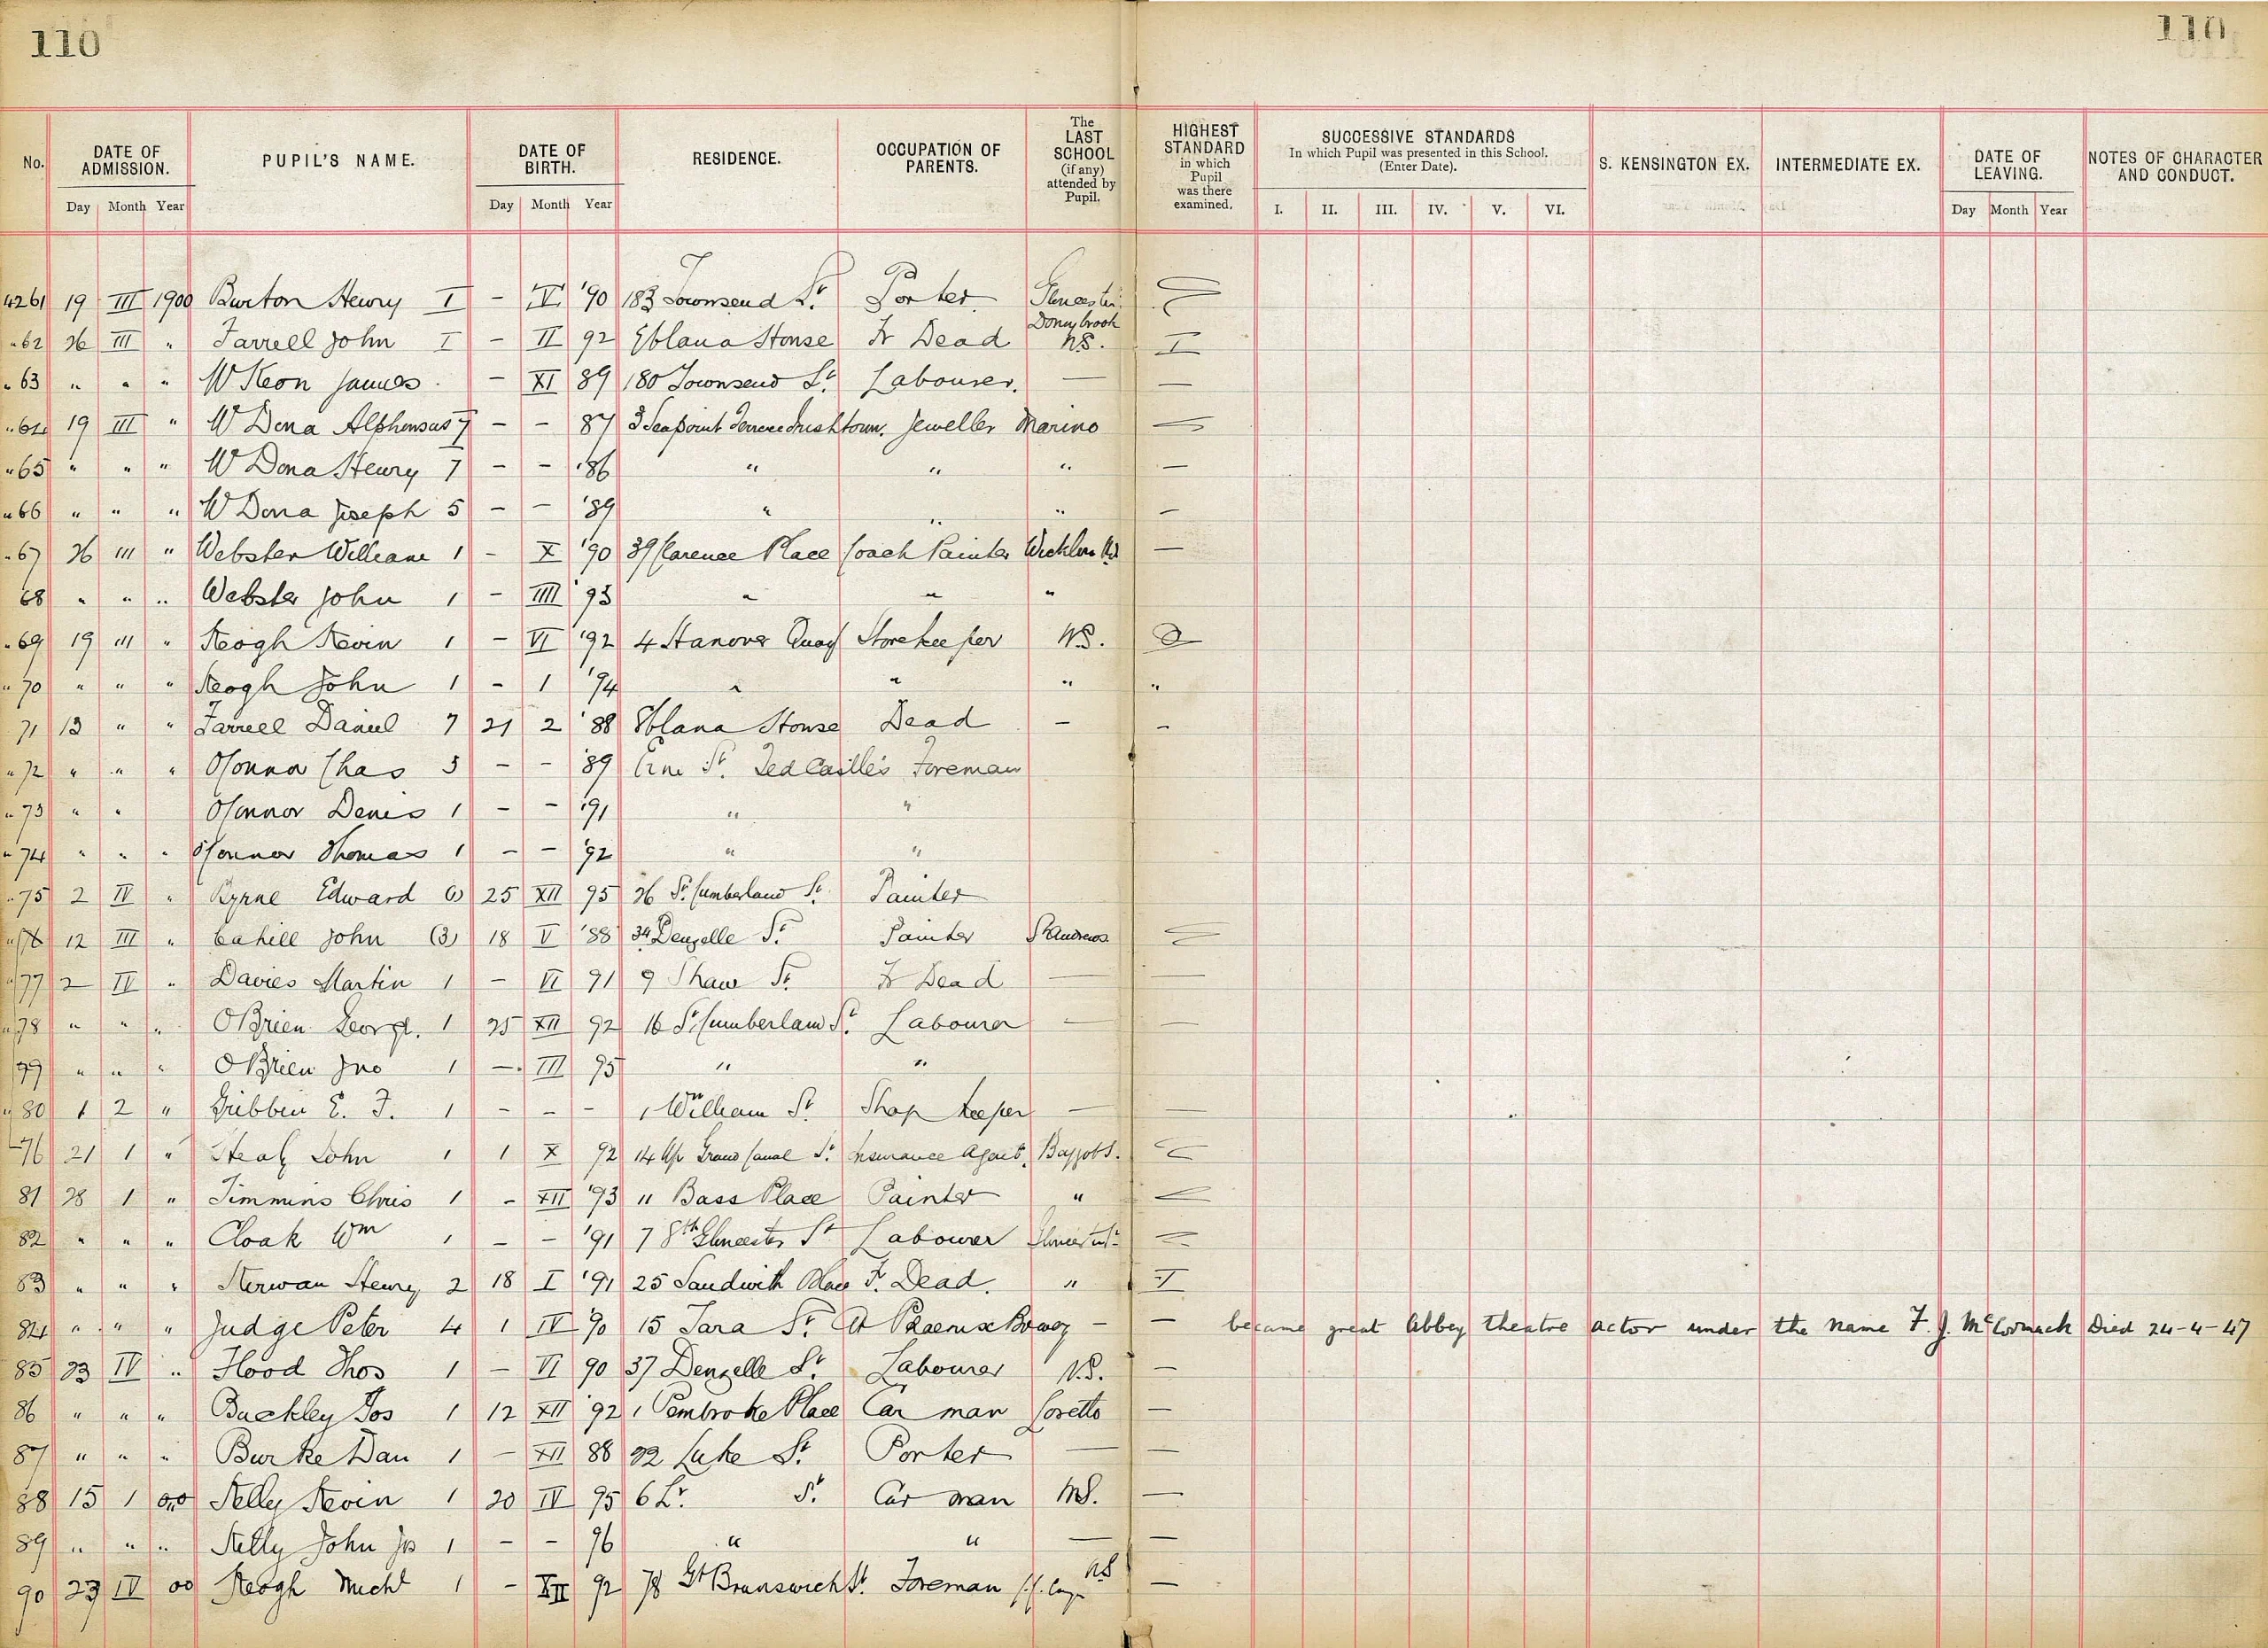 110
110
No. DATE OF ADMISSION. PUPIL'S NAME. DATE OF BIRTH. RESIDENCE. OCCUPATION OF PARENTS. The LAST SCHOOL (if any) attended by Pupil. HIGHEST STANDARD in which Pupil was there examined. SUCCESSIVE STANDARDS In which Pupil was presented in this School. (Enter Date). S. KENSINGTON EX. INTERMEDIATE EX. DATE OF LEAVING. NOTES OF CHARACTER AND CONDUCT.
Day Month Year Day Month Year I. II. III. IV. V. VI. Day Month Year
4261 19 III 1900 Burton Henry I - IV '90 183 Townsend St Porter Gloucester
"62 26 III " Farrell John I - II 92 Eblana House Fr Dead Donnybrook NS. I
"63 " " " McKeon James - XI 89 180 Townsend St. Labourer. — —
"64 19 III " McDona Alphonsus 7 - - 87 3 Seapoint Terrace Irishtown. Jeweller Marino
"65 " " " McDona Henry 7 - - '86 " " " —
"66 " " " McDona Joseph 5 - - '89 " " " —
"67 26 III " Webster William 1 - X '90 39 Clarence Place Coach Painter Wicklow —
68 " " " Webster John 1 - IIII '93 " " "
"69 19 III " Keogh Kevin 1 - VI '92 4 Hanover Quay Storekeeper NS.
"70 " " " Keogh John 1 - 1 '94 " " " "
71 13 " " Farrell Daniel 7 21 2 '88 Eblana House Dead - -
"72 " " " O'Connor Chas 3 - - '89 Erne St. Tedcastle's Foreman
"73 " " O'Connor Denis 1 - - '91 " "
"74 " " " O'Connor Thomas 1 - - '92 " "
"75 2 IV " Byrne Edward (1) 25 XII 95 26 St. Cumberland St. Painter
"76 12 III " Cahill John (3) 18 V '88 34 Denzelle St. Painter St Andrews
"77 2 IV " Davies Martin 1 - VI 91 9 Shaw St. Fr Dead — —
"78 " " " OBrien George. 1 25 XII 92 16 St Cumberland St. Labourer — —
79 " " " O'Brien Jno 1 - III 95 " "
"80 1 2 " Gribbin E. F. 1 - - - 1 William St. Shop keeper — —
76 21 1 " Healy John 1 1 X 92 14 Up Grand Canal St. Insurance Agent. Baggot S.
81 28 1 " Timmins Chris 1 - XII '93 11 Bass Place Painter "
82 " " " Cloak Wm 1 - - '91 7 Sth Gloucester St Labourer Gloucester St
83 " " " Kerwan Henry 2 18 I '91 25 Sandwith Place F. Dead. " I
84 " " " Judge Peter 4 1 IV '90 15 Tara St. At Phoenix Brewery - — became great Abbey theatre actor under the name F. J. McCormack Died 24-4-47
85 23 IV " Flood Thos 1 - VI 90 37 Denzelle St. Labourer N.S. —
86 " " " Buckley Jos 1 12 XII '92 1 Pembroke Place Car man Loretto —
87 " " " Burke Dan 1 - XII 88 22 Luke St. Porter — —
88 15 1 00 Kelly Kevin 1 20 IV 95 6 Lr. St. Car man NS. —
89 " " " Kelly John Jos 1 - - 96 " " — —
90 23 IV 00 Keogh Michl 1 - XII 92 78 Gt Brunswick St. Foreman NS —